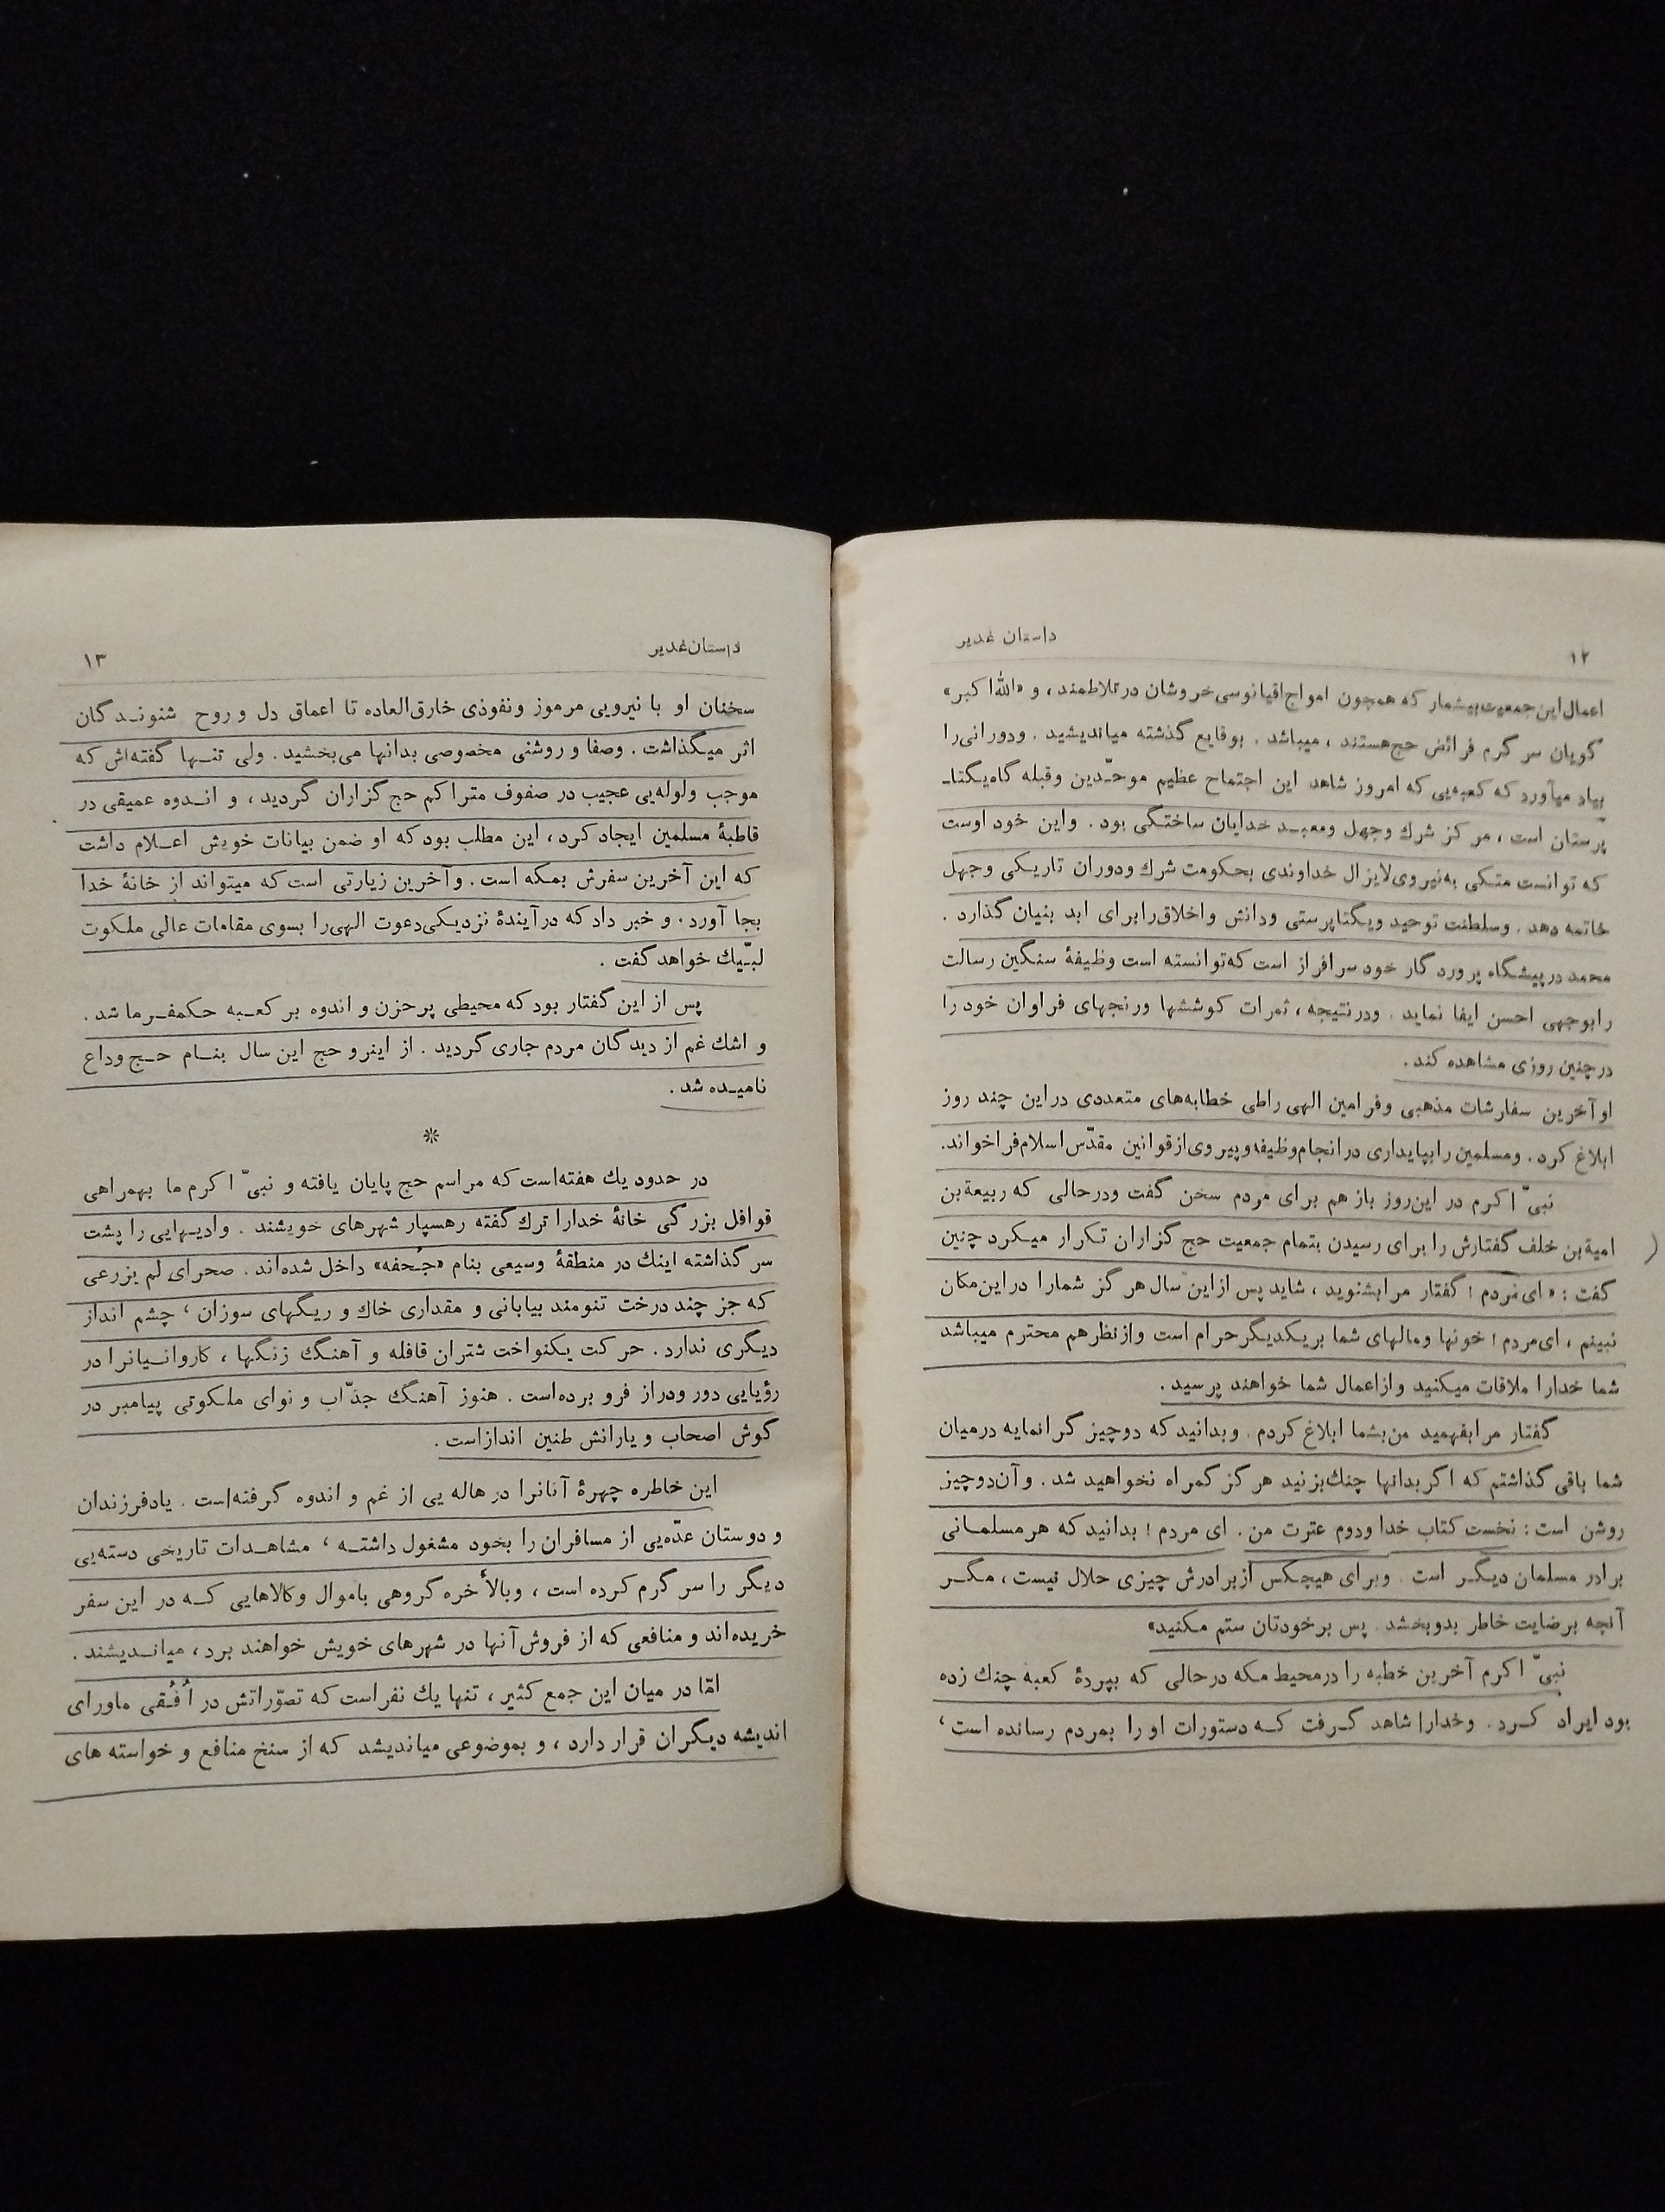 ۱۲
داستان غدیر
اعمال این جمعیت بیشمار که همچون امواج اقیانوسی خروشان در تلاطمند ، و «الله اکبر»
گویان سر گرم فرائض حج هستند ، میباشد . بوقایع گذشته میاندیشید . ودورانی را
بیاد میآورد که کعبه‌یی که امروز شاهد این اجتماح عظیم موحّدین وقبله گاه یگتا-
پرستان است ، مرکز شرك وجهل ومعبد خدایان ساختگی بود . واین خود اوست
که توانست متکی به نیروی لایزال خداوندی بحکومت شرك ودوران تاریکی وجهل
خاتمه دهد . وسلطنت توحید ویگتاپرستی ودانش واخلاق را برای ابد بنیان گذارد .
محمد در پیشگاه پرورد گار خود سرافراز است که توانسته است وظیفهٔ سنگین رسالت
را بوجهی احسن ایفا نماید . ودرنتیجه ، ثمرات کوششها ورنجهای فراوان خود را
در چنین روزی مشاهده کند .
او آخرین سفارشات مذهبی وفرامین الهی راطی خطابه‌های متعددی در این چند روز
ابلاغ کرد . ومسلمین را بپایداری در انجام وظیفه وپیروی از قوانین مقدّس اسلام فراخواند.
نبیّ اکرم در این روز باز هم برای مردم سخن گفت ودرحالی که ربیعة بن
امیة بن خلف گفتارش را برای رسیدن بتمام جمعیت حج گزاران تکرار میکرد چنین
گفت : « ای مردم ! گفتار مرا بشنوید ، شاید پس از این سال هر گز شمارا در این مکان
نبینم ، ای مردم ! خونها ومالهای شما بر یکدیگر حرام است واز نظر هم محترم میباشد
شما خدارا ملاقات میکنید واز اعمال شما خواهند پرسید .
گفتار مرا بفهمید من بشما ابلاغ کردم . وبدانید که دوچیز گرانمایه درمیان
شما باقی گذاشتم که اگر بدانها چنك بزنید هر گز گمراه نخواهید شد . و آن دوچیز
روشن است : نخست کتاب خدا ودوم عترت من . ای مردم ! بدانید که هر مسلمانی
برادر مسلمان دیگر است . وبرای هیچکس از برادرش چیزی حلال نیست ، مگر
آنچه برضایت خاطر بدو بخشد . پس بر خودتان ستم مکنید»
نبیّ اکرم آخرین خطبه را درمحیط مکه درحالی که بپردهٔ کعبه چنك زده
بود ایراد کرد . وخدارا شاهد گرفت که دستورات او را بمردم رسانده است ،
داستان غدیر
۱۳
سخنان او با نیرویی مرموز ونفوذی خارق‌العاده تا اعماق دل و روح شنوندگان
اثر میگذاشت . وصفا و روشنی مخصوصی بدانها می‌بخشید . ولی تنها گفته‌اش که
موجب ولوله‌یی عجیب در صفوف متراکم حج گزاران گردید ، و اندوه عمیقی در
قاطبهٔ مسلمین ایجاد کرد ، این مطلب بود که او ضمن بیانات خویش اعلام داشت
که این آخرین سفرش بمکه است . و آخرین زیارتی است که میتواند از خانهٔ خدا
بجا آورد . و خبر داد که در آیندهٔ نزدیکی دعوت الهی را بسوی مقامات عالی ملکوت
لبّیك خواهد گفت .
پس از این گفتار بود که محیطی پر حزن و اندوه بر کعبه حکمفرما شد .
و اشك غم از دیدگان مردم جاری گردید . از اینرو حج این سال بنام حج وداع
نامیده شد .
*
در حدود یك هفته است که مراسم حج پایان یافته و نبیّ اکرم ما بهمراهی
قوافل بزرگی خانهٔ خدارا ترك گفته رهسپار شهرهای خویشند . وادیهایی را پشت
سر گذاشته اینك در منطقهٔ وسیعی بنام «جُحفه» داخل شده‌اند . صحرای لم یزرعی
که جز چند درخت تنومند بیابانی و مقداری خاك و ریگهای سوزان ، چشم انداز
دیگری ندارد . حرکت یکنواخت شتران قافله و آهنگ زنگها ، کاروانیانرا در
رؤیایی دور ودراز فرو برده است . هنوز آهنگ جذّاب و نوای ملکوتی پیامبر در
گوش اصحاب و یارانش طنین انداز است .
این خاطره چهرهٔ آنانرا در هاله یی از غم و اندوه گرفته‌است . یادفرزندان
و دوستان عدّه‌یی از مسافران را بخود مشغول داشته ، مشاهدات تاریخی دسته‌یی
دیگر را سر گرم کرده است ، وبالأخره گروهی باموال وکالاهایی که در این سفر
خریده‌اند و منافعی که از فروش آنها در شهرهای خویش خواهند برد ، میاندیشند .
امّا در میان این جمع کثیر ، تنها یك نفر است که تصوّراتش در اُفُقی ماورای
اندیشه دیگران قرار دارد ، و بموضوعی میاندیشد که از سنخ منافع و خواسته های